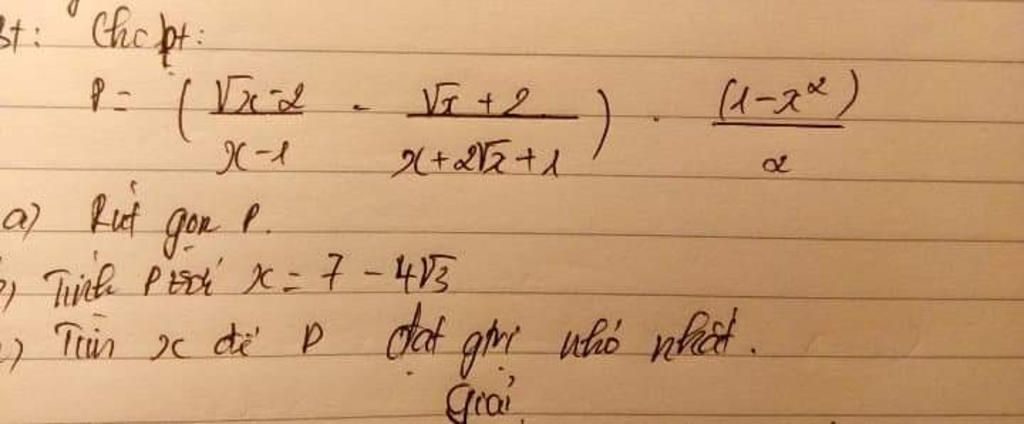 Bt: Cho bt:
P = ( (√x-2)/(x-1) - (√x+2)/(x+2√x+1) ) . (1-x²)/2
a) Rút gọn P.
b) Tính P tại x = 7 - 4√3
c) Tìm x để P đạt gtrị nhỏ nhất.
Giải